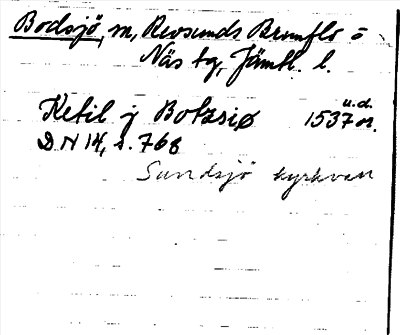 Bodsjö, sn, Revsunds Brunflo o
Näs tg, Jämtl. l.
Ketil j Botzsiø 1537 u.d. or.
DN 14, s. 768
Sundsjö kyrkvan